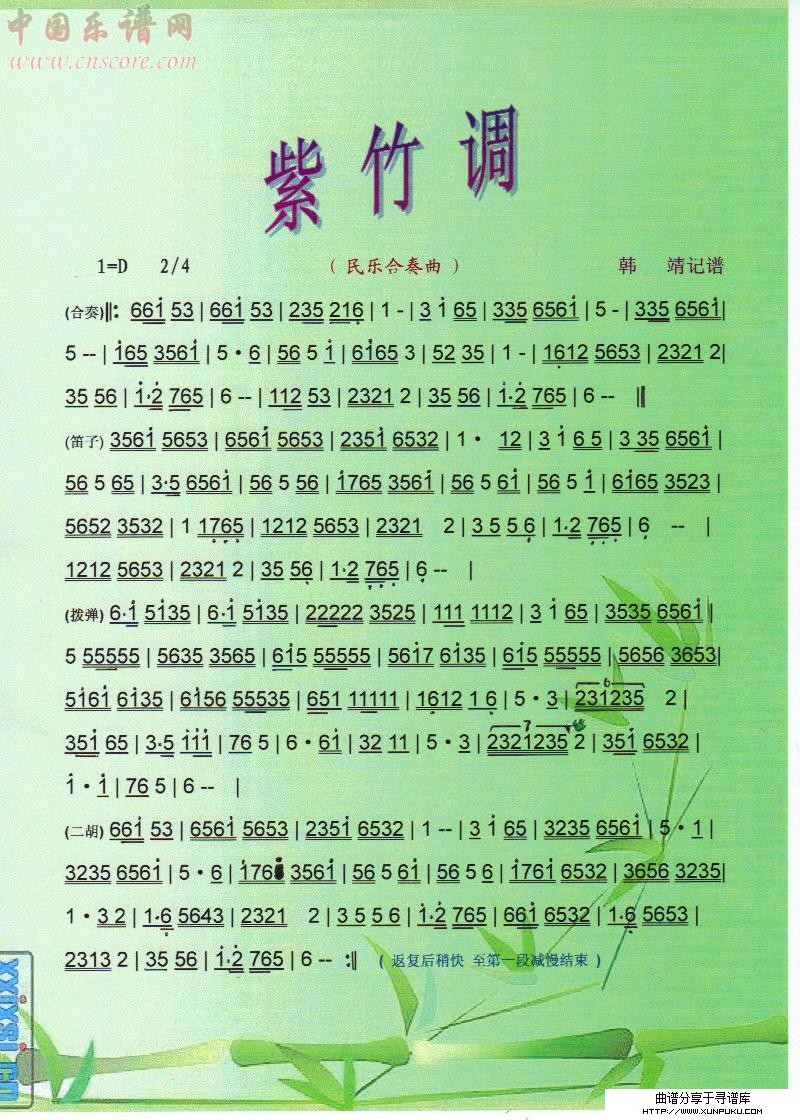 中国乐谱网
www.cnscore.com
紫竹调
1=D 2/4 (民乐合奏曲) 韩 靖记谱
(合奏)‖: 66i̇ 53 | 66i̇ 53 | 235 216̣ | 1 - | 3 i̇ 65 | 335 656i̇ | 5 - | 335 656i̇ |
5 -- | i̇65 356i̇ | 5 · 6 | 56 5 i̇ | 6i̇65 3 | 52 35 | 1 - | 16̣12 5653 | 2321 2 |
35 56 | i̇·2̇ 765 | 6 -- | 112 53 | 2321 2 | 35 56 | i̇·2̇ 765 | 6 -- ‖
(笛子) 356i̇ 5653 | 656i̇ 5653 | 235i̇ 6532 | 1 · 12 | 3 i̇ 6 5 | 3 35 656i̇ |
56 5 65 | 3·5 656i̇ | 56 5 56 | i̇765 356i̇ | 56 5 6i̇ | 56 5 i̇ | 6i̇65 3523 |
5652 3532 | 1 17̣6̣5̣ | 1212 5653 | 2321 2 | 3 5 5 6̣ | 1·2 7̣6̣5̣ | 6̣ -- |
1212 5653 | 2321 2 | 35 56̣ | 1·2 7̣6̣5̣ | 6̣ -- |
(拨弹) 6·i̇ 5i̇35 | 6·i̇ 5i̇35 | 22222 3525 | 111 1112 | 3 i̇ 65 | 3535 656i̇ |
5 55555 | 5635 3565 | 6i̇5 55555 | 56i̇7 6i̇35 | 6i̇5 55555 | 5656 3653 |
5i̇6i̇ 6i̇35 | 6i̇56 55535 | 651 11111 | 16̣12 1 6̣ | 5 · 3 | 231235 2 |
6
35i̇ 65 | 3·5 i̇i̇i̇ | 76 5 | 6 · 6i̇ | 32 11 | 5 · 3 | 2321235 2 | 35i̇ 6532 |
7
i̇ · i̇ | 76 5 | 6 -- |
(二胡) 66i̇ 53 | 656i̇ 5653 | 235i̇ 6532 | 1 -- | 3 i̇ 65 | 3235 656i̇ | 5 · 1 |
3235 656i̇ | 5 · 6 | i̇76 356i̇ | 56 5 6i̇ | 56 5 6 | i̇76i̇ 6532 | 3656 3235 |
1 · 3 2 | 1·6̣ 5643 | 2321 2 | 3 5 5 6 | i̇·2̇ 765 | 66i̇ 6532 | 1·6̣ 5653 |
2313 2 | 35 56 | i̇·2̇ 765 | 6 -- :‖ (返复后稍快 至第一段减慢结束)
曲谱分享于寻谱库
HTTP://WWW.XUNPUKU.COM